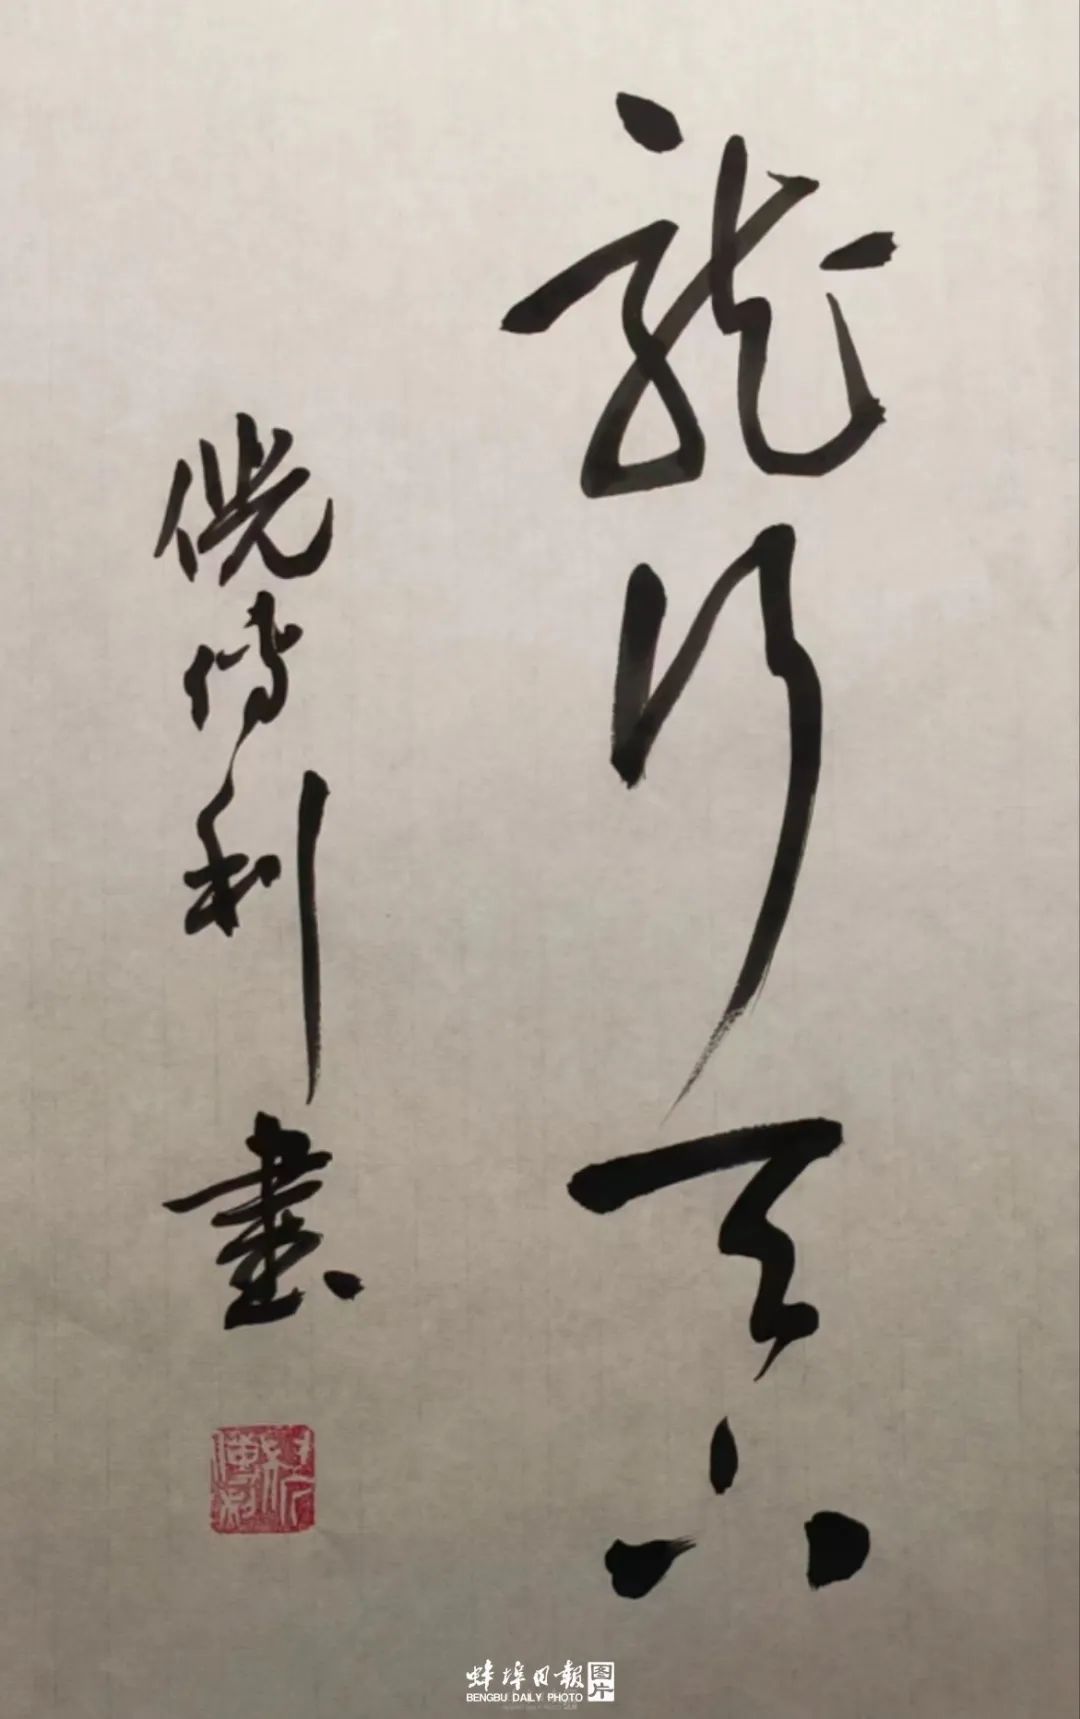 龍行天下
倪傳利書
倪傳利
蚌埠日報 图片
BENGBU DAILY PHOTO